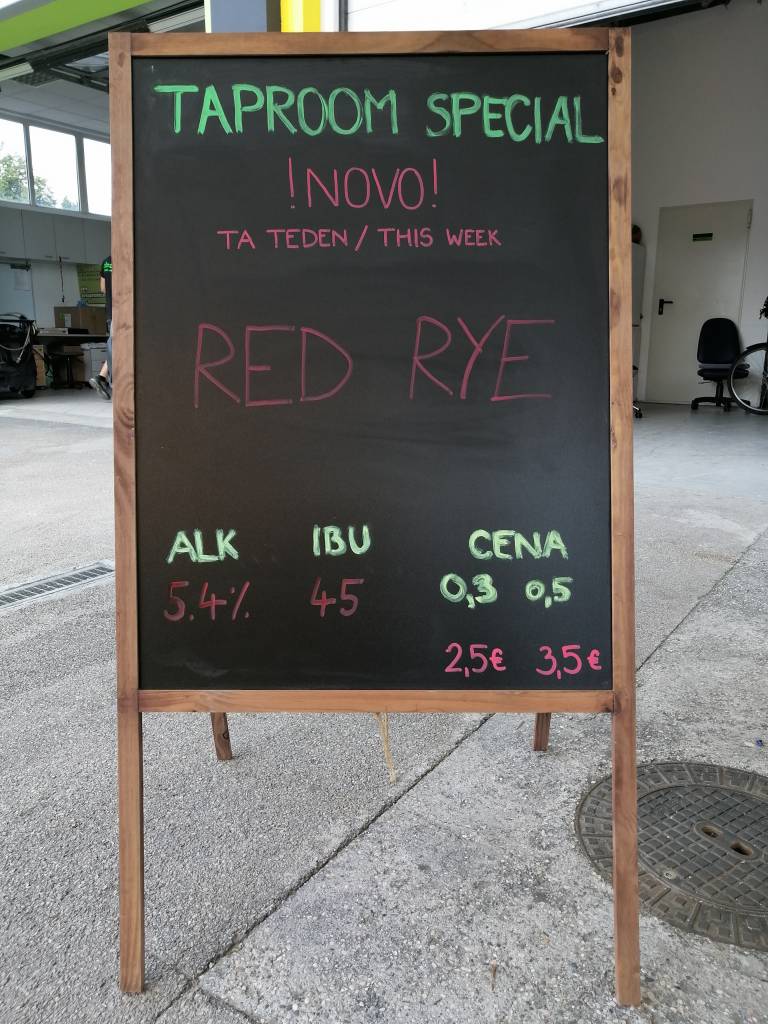 TAPROOM SPECIAL
!NOVO!
TA TEDEN / THIS WEEK
RED RYE
ALK IBU CENA
5.4% 45 0,3 0,5
2,5€ 3,5€